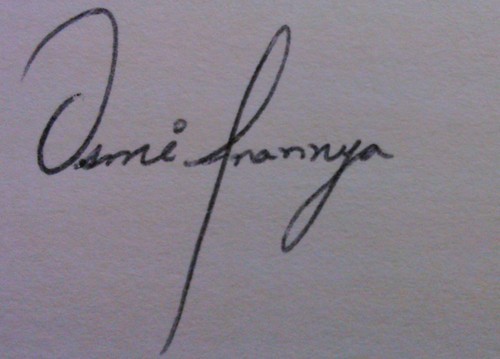 Osmi Anannya